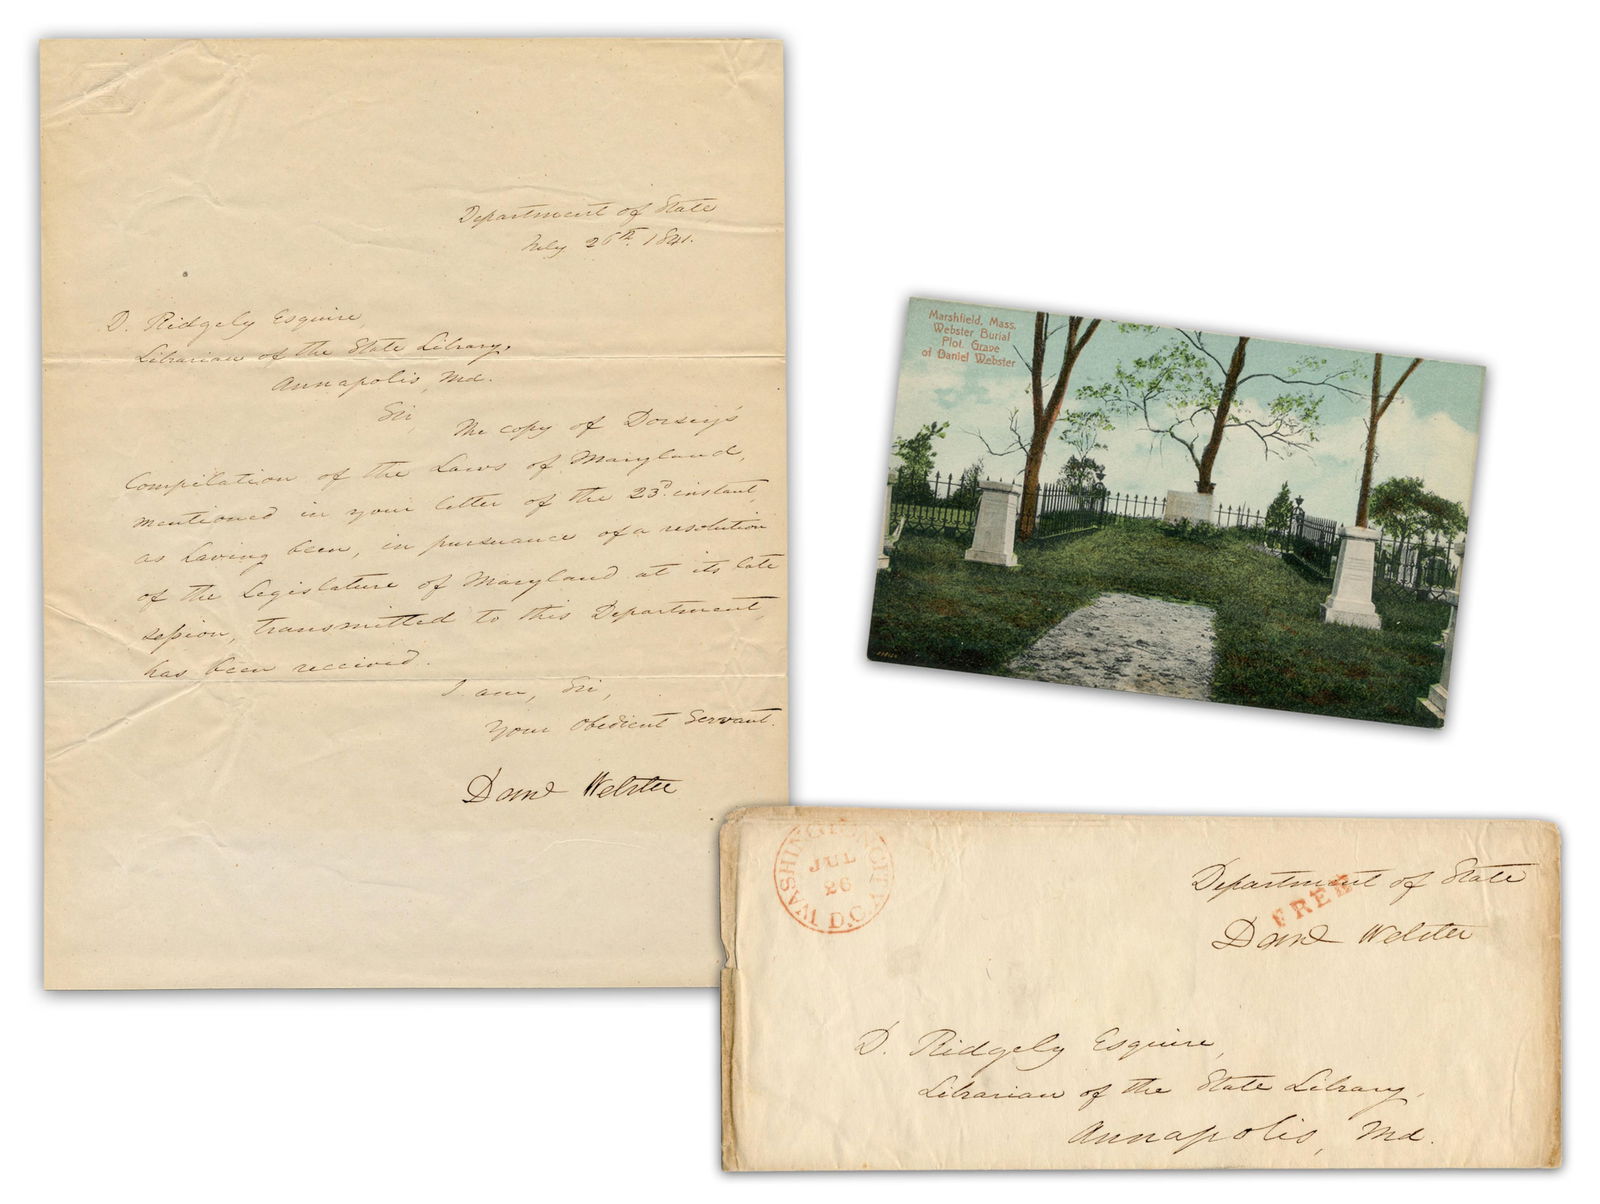 Department of State
July 26th. 1841.
D. Ridgely Esquire,
Librarian of the State Library,
Annapolis, Md.
Sir,
The copy of Dorsey's
Compilation of the Laws of Maryland,
mentioned in your letter of the 23d. instant,
as having been, in pursuance of a resolution
of the Legislature of Maryland at its late
session, transmitted to this Department,
has been received.
I am, Sir,
Your Obedient Servant.
Danl Webster
Marshfield, Mass.
Webster Burial
Plot. Grave
of Daniel Webster
WASHINGTON CITY D.C.
JUL
26
Department of State
FREE
Danl Webster
D. Ridgely Esquire,
Librarian of the State Library,
Annapolis, Md.